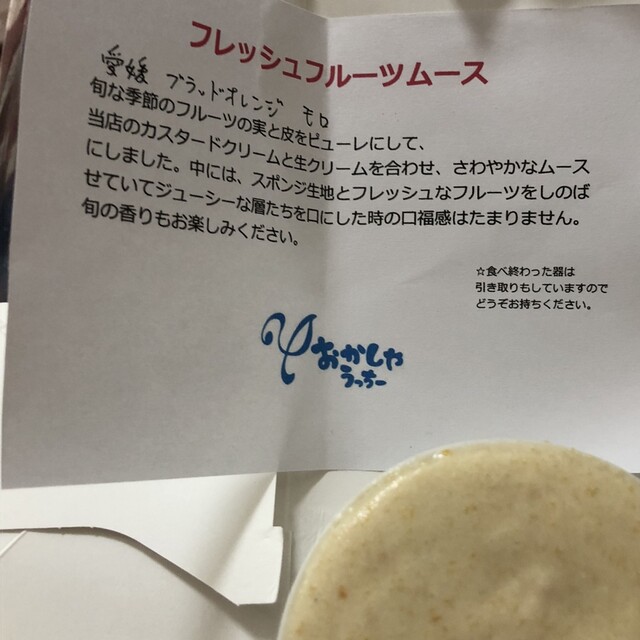 フレッシュフルーツムース
愛媛 ブラッドオレンジ モロ
旬な季節のフルーツの実と皮をピューレにして、
当店のカスタードクリームと生クリームを合わせ、さわやかなムース
にしました。中には、スポンジ生地とフレッシュなフルーツをしのば
せていてジューシーな層たちを口にした時の口福感はたまりません。
旬の香りもお楽しみください。
☆食べ終わった器は
引き取りもしていますので
どうぞお持ちください。
おかしや
うっちー